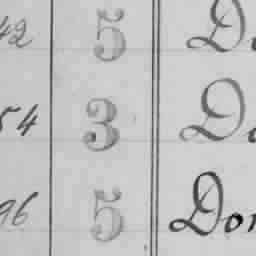 42 5 Do
54 3 Do
96 5 Don